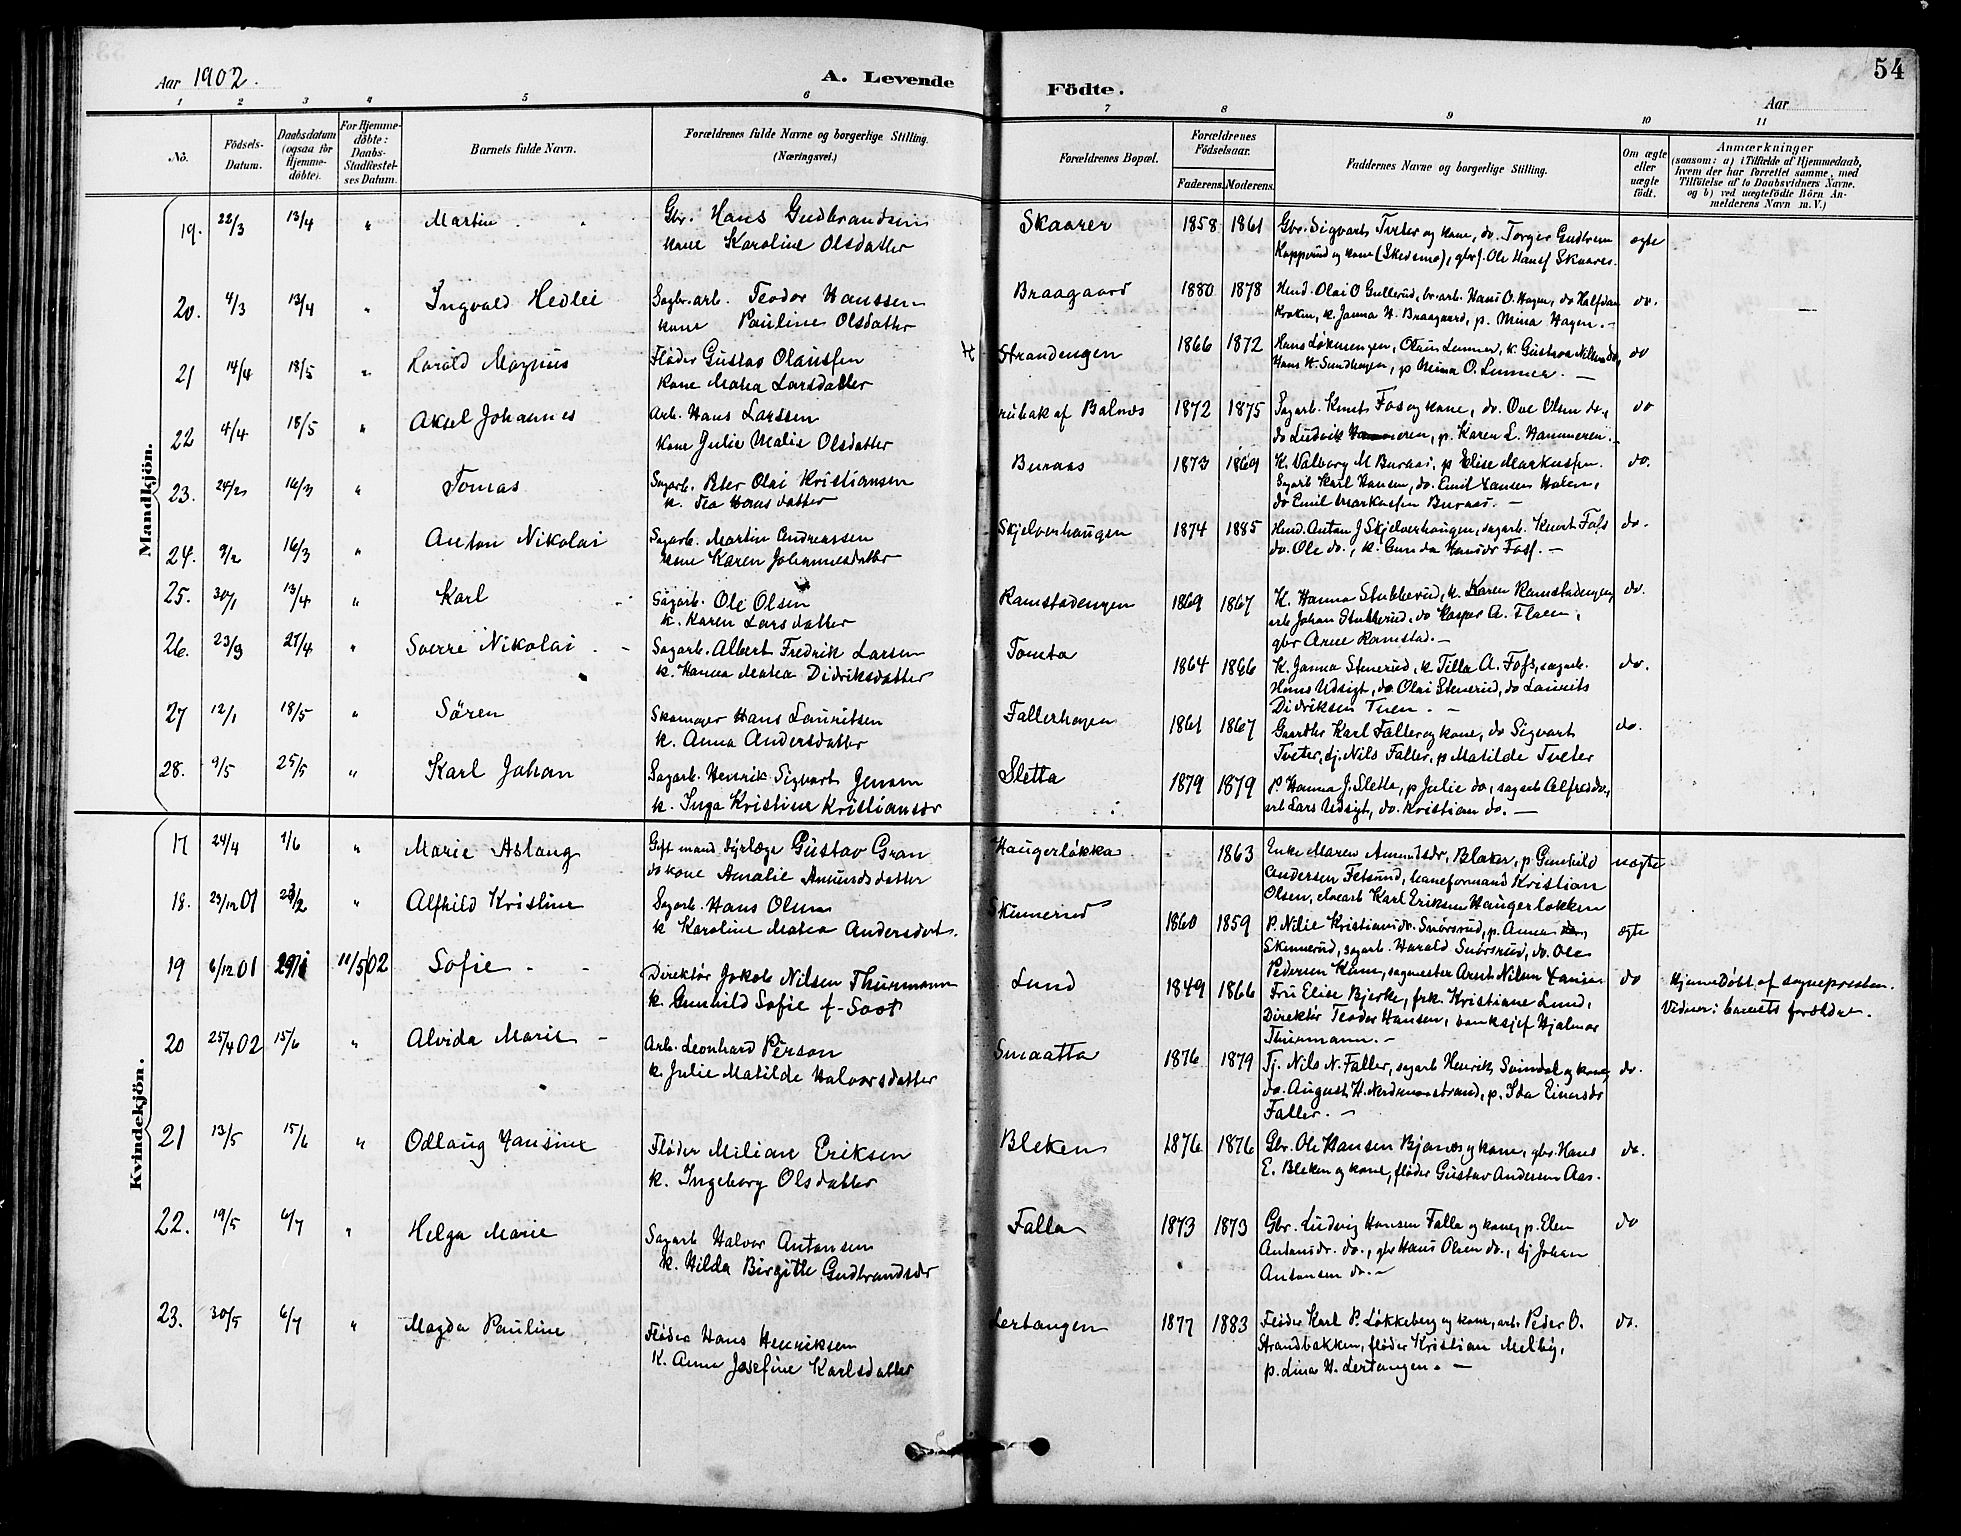 54
Aar 1902.
A. Levende Födte.
Aar
1 2 3 4 5 6 7 8 9 10 11
No.
Födsels-Datum.
Daabsdatum (ogsaa for Hjemme-döbte).
For Hjemme-döbte: Daabs-Stadfæstel-ses Datum.
Barnets fulde Navn.
Forældrenes fulde Navne og borgerlige Stilling. (Næringsvei.)
Forældrenes Bopæl.
Forældrenes Födselsaar.
Faderens. Moderens.
Faddernes Navne og borgerlige Stilling.
Om ægte eller uægte födt.
Anmærkninger
(saasom: a) i Tilfælde af Hjemmedaab, hvem der har forrettet samme, med Tilföielse af to Daabsvidners Navne. og b) ved uægtefödte Börn An-melderens Navn m. V.)
Mandkjön.
19. 22/3 13/4 " Martin Gbr. Hans Gudbrandsen
kone Karoline Olsdatter
Skaarer 1858 1861 Gbr. Sigvart Tveter og kone, do. Torger
Kopperud og kone (Skedsmo), gbrs. Ole Hansf Skaarer.
ægte
20. 4/3 13/4 " Ingvald Hedlei Sagbr.arb. Teodor Hanssen
kone Pauline Olsdatter
Braagaard 1880 1878 Hmd. Olai O Gullerud, br. arb. Hans O. Hagen, do Halfdan
Kroken, k. Janna H. Braagaard, p. Mina Hagen. —
do.
21 14/4 18/5 " Harald Magnus Fløder Gustav Olaussen
kone Matea Larsdatter
Strandengen 1866 1872 Hans Løkensengen, Olaus Lunner, k. Gustava Nilsen do,
Hans H. Sundhagen, p Mina O. Lunner. —
do
22 4/4 18/5 " Aksel Johannes Arb. Hans Larssen
kone Julie Malie Olsdatter
af Balnes 1872 1875 Sagarb. Knut Fos og kone, do. Ove Olsen do.,
do Ludvik Hammeren, p. Karen L. Hammeren.
do
23. 24/2 16/3 " Tomas Sagarb. Peter Olai Kristiansen
k. Tea Hansdatter
Buraas 1873 1869 K. Valborg M Buraas, p Elise Markussen.
Sagarb Karl Hansen, do. Emil Hansen Holen,
do Emil Markussen Buraas. —
do.
24. 9/2 16/3 " Anton Nikolai Sagarb. Martin Andreassen
kone Karen Johannesdatter
Skjelverhaugen 1874 1885 Hmd. Anton J Skjelverhaugen, sagarb. Knut Foss
do. Ole do., k. Gunda Hansdr Foss. —
do.
25. 30/1 13/4 " Karl Sagarb. Ole Olsen
k. Karen Larsdatter
Ramstadengen 1869 1867 K. Hanna Stubberud, k. Karen Ramstadengen,
arb Johan Stubberud, do Kasper A. Flaen,
gbr Arne Ramstad. —
do.
26. 23/3 27/4 " Sverre Nikolai Sagarb. Albert Fredrik Larsen
k. Hanna Matea Didriksdatter
Tomta 1864 1866 K. Janna Stenerud, k Tilla A. Foss, sagarb.
Hans Udsigt, do. Olai Stenerud, do Laurits
Didriksen Tuen. —
do.
27 12/1 18/5 " Sören Skomager Hans Lauritsen
k. Anna Andersdatter
Fallerhagen 1861 1867 Gaardbr Karl Faller og kone, do Sigvart
Tveter, tj. Nils Faller, p Matilde Tveter
do.
28. 9/5 25/5 " Karl Johan Sagarb. Henrik Sigvart Jensen
k. Inga Kristine Kristiansdr
Sletta 1879 1879 p. Hanna J. Sletta, p Julie do, sagarb Alfred do,
arb Lars Udsigt, do. Kristian do. —
Kvindekjön.
17 24/4 1/6 " Marie Aslaug Gift mand dyrlæge Gustav Gran
do kone Amalie Amundsdatter
Haugerløkka 1863 Enke Maren Amundsdr. Blaker, p. Gunhild
Andersen Fetsund, baneformand Kristian
Olsen, elvearb Karl Eriksen Haugerløkken
uægte
18. 29/12 01 23/2 " Alfhild Kristine Sagarb. Hans Olsen
k Karoline Matea Andersdat.
Skinnerud 1860 1859 P. Nilie Kristiansdr. Snörsrud, p. Anna
Skinnerud, sagarb. Harald Snörsrud, do. Ole
Pedersen Kum, sagmester Arnt Nilsen
ægte
19 6/12 01 11/5 02 Sofie Direktør Jakob Nilsen Thurmann
k. Gunhild Sofie f. Soot
Lund 1849 1866 Fru Elise Bjerke, frk. Kristiane Lund,
Direktør Teodor Hansen, banksjef Hjalmar
Thurmann. —
do Hjemmedöbt af sognepresten.
Vidner: barnets forældre.
20 25/4 02 15/6 " Alvida Marie Arb. Leonhard Person
k. Julie Matilde Halvorsdatter
Smaatta 1876 1879 Tj. Nils N. Faller, sagarb Henrik Svindal og kone,
do. August H. Nordenaastrand, p. Ida Einarsdr
Faller. —
do.
21 13/5 15/6 " Odlaug Jansine Fløder Milian Eriksen
k. Ingeborg Olsdatter
Bleken 1876 1876 Gbr. Ole Hansen Bjanæs og kone, gbr. Hans
E. Bleken og kone, fløder Gustav Andersen Aas.
do.
22. 19/5 6/7 " Helga Marie Sagarb Halvor Antonsen
k. Hilda Birgitte Gudbrandsdr
Falla 1873 1873 Gbr. Ludvig Hansen Falla og kone, p. Elen
Antonsdr. do., gbr Hans Olsen do., tj Johan
Antonsen do. —
do
23. 30/5 6/7 " Magda Pauline Fløder Hans Henriksen
K. Anne Josefine Karlsdatter
Lertangen 1877 1883 Fløder Karl P. Løkkeberg og kone, arb. Peder O.
Strandbakken, fløder Kristian Melby,
p. Lina H. Lertangen. —
do.